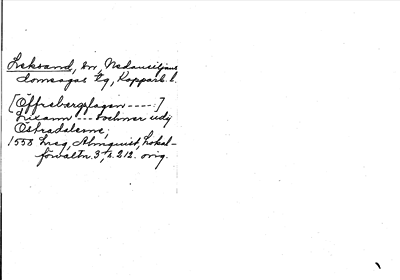 Leksand, sn, Nedansiljans
domsagas tlg, Kopparb. l.
[Öffrebergslagen ----]
Lixann --- sochner udj
Östradalerne,
1558 Lreg, Almquist, Lokal-
förvaltn. 3, s. 212. orig.